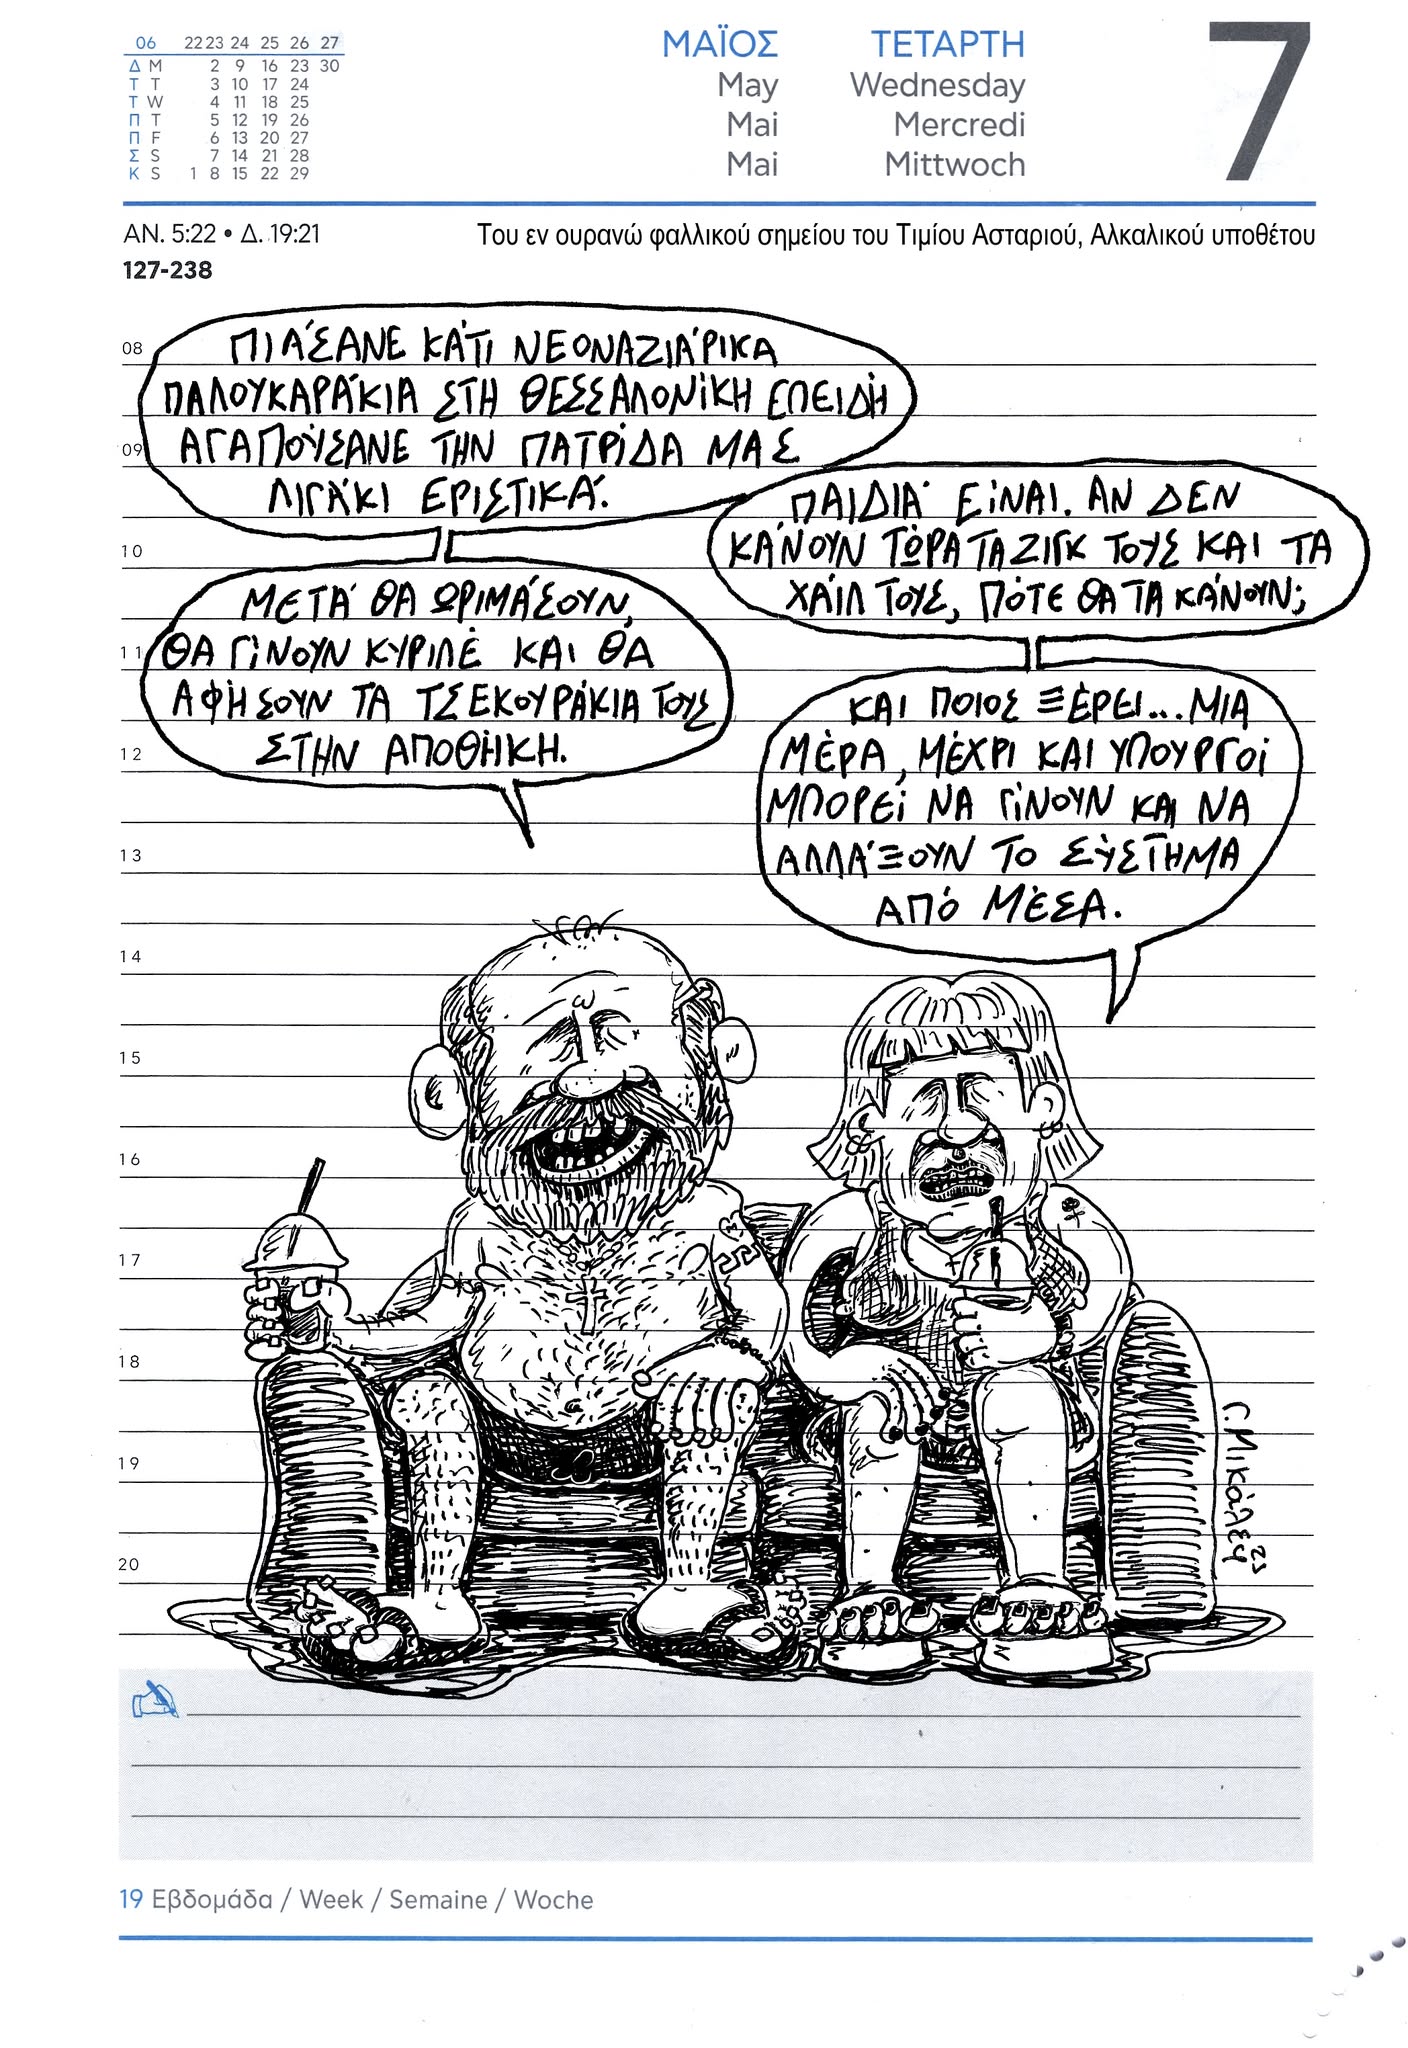 06 22 23 24 25 26 27
Δ M 2 9 16 23 30
Τ T 3 10 17 24
Τ W 4 11 18 25
Π T 5 12 19 26
Π F 6 13 20 27
Σ S 7 14 21 28
Κ S 1 8 15 22 29
ΜΑΪΟΣ ΤΕΤΑΡΤΗ
May Wednesday
Mai Mercredi
Mai Mittwoch
7
ΑΝ. 5:22 • Δ. 19:21
127-238
Του εν ουρανώ φαλλικού σημείου του Τιμίου Ασταριού, Αλκαλικού υποθέτου
08
09
10
11
12
13
14
15
16
17
18
19
20
ΠΙΆΣΑΝΕ ΚΆΤΙ ΝΕΟΝΑΖΙΆΡΙΚΑ
ΠΑΛΟΥΚΑΡΆΚΙΑ ΣΤΗ ΘΕΣΣΑΛΟΝΊΚΗ ΕΠΕΙΔΉ
ΑΓΑΠΟΎΣΑΝΕ ΤΗΝ ΠΑΤΡΊΔΑ ΜΑΣ
ΛΙΓΆΚΙ ΕΡΙΣΤΙΚΆ.
ΠΑΙΔΙΆ ΕΊΝΑΙ. ΑΝ ΔΕΝ
ΚΆΝΟΥΝ ΤΏΡΑ ΤΑ ΖΙΓΚ ΤΟΥΣ ΚΑΙ ΤΑ
ΧΆΙΛ ΤΟΥΣ, ΠΌΤΕ ΘΑ ΤΑ ΚΆΝΟΥΝ;
ΜΕΤΆ ΘΑ ΩΡΙΜΆΣΟΥΝ,
ΘΑ ΓΊΝΟΥΝ ΚΥΡΙΛΈ ΚΑΙ ΘΑ
ΑΦΉΣΟΥΝ ΤΑ ΤΣΕΚΟΥΡΆΚΙΑ ΤΟΥΣ
ΣΤΗΝ ΑΠΟΘΉΚΗ.
ΚΑΙ ΠΟΙΟΣ ΞΈΡΕΙ... ΜΙΑ
ΜΈΡΑ, ΜΈΧΡΙ ΚΑΙ ΥΠΟΥΡΓΟΊ
ΜΠΟΡΕΊ ΝΑ ΓΊΝΟΥΝ ΚΑΙ ΝΑ
ΑΛΛΆΞΟΥΝ ΤΟ ΣΎΣΤΗΜΑ
ΑΠΌ ΜΈΣΑ.
Γ. Μικάλεφ 25
19 Εβδομάδα / Week / Semaine / Woche